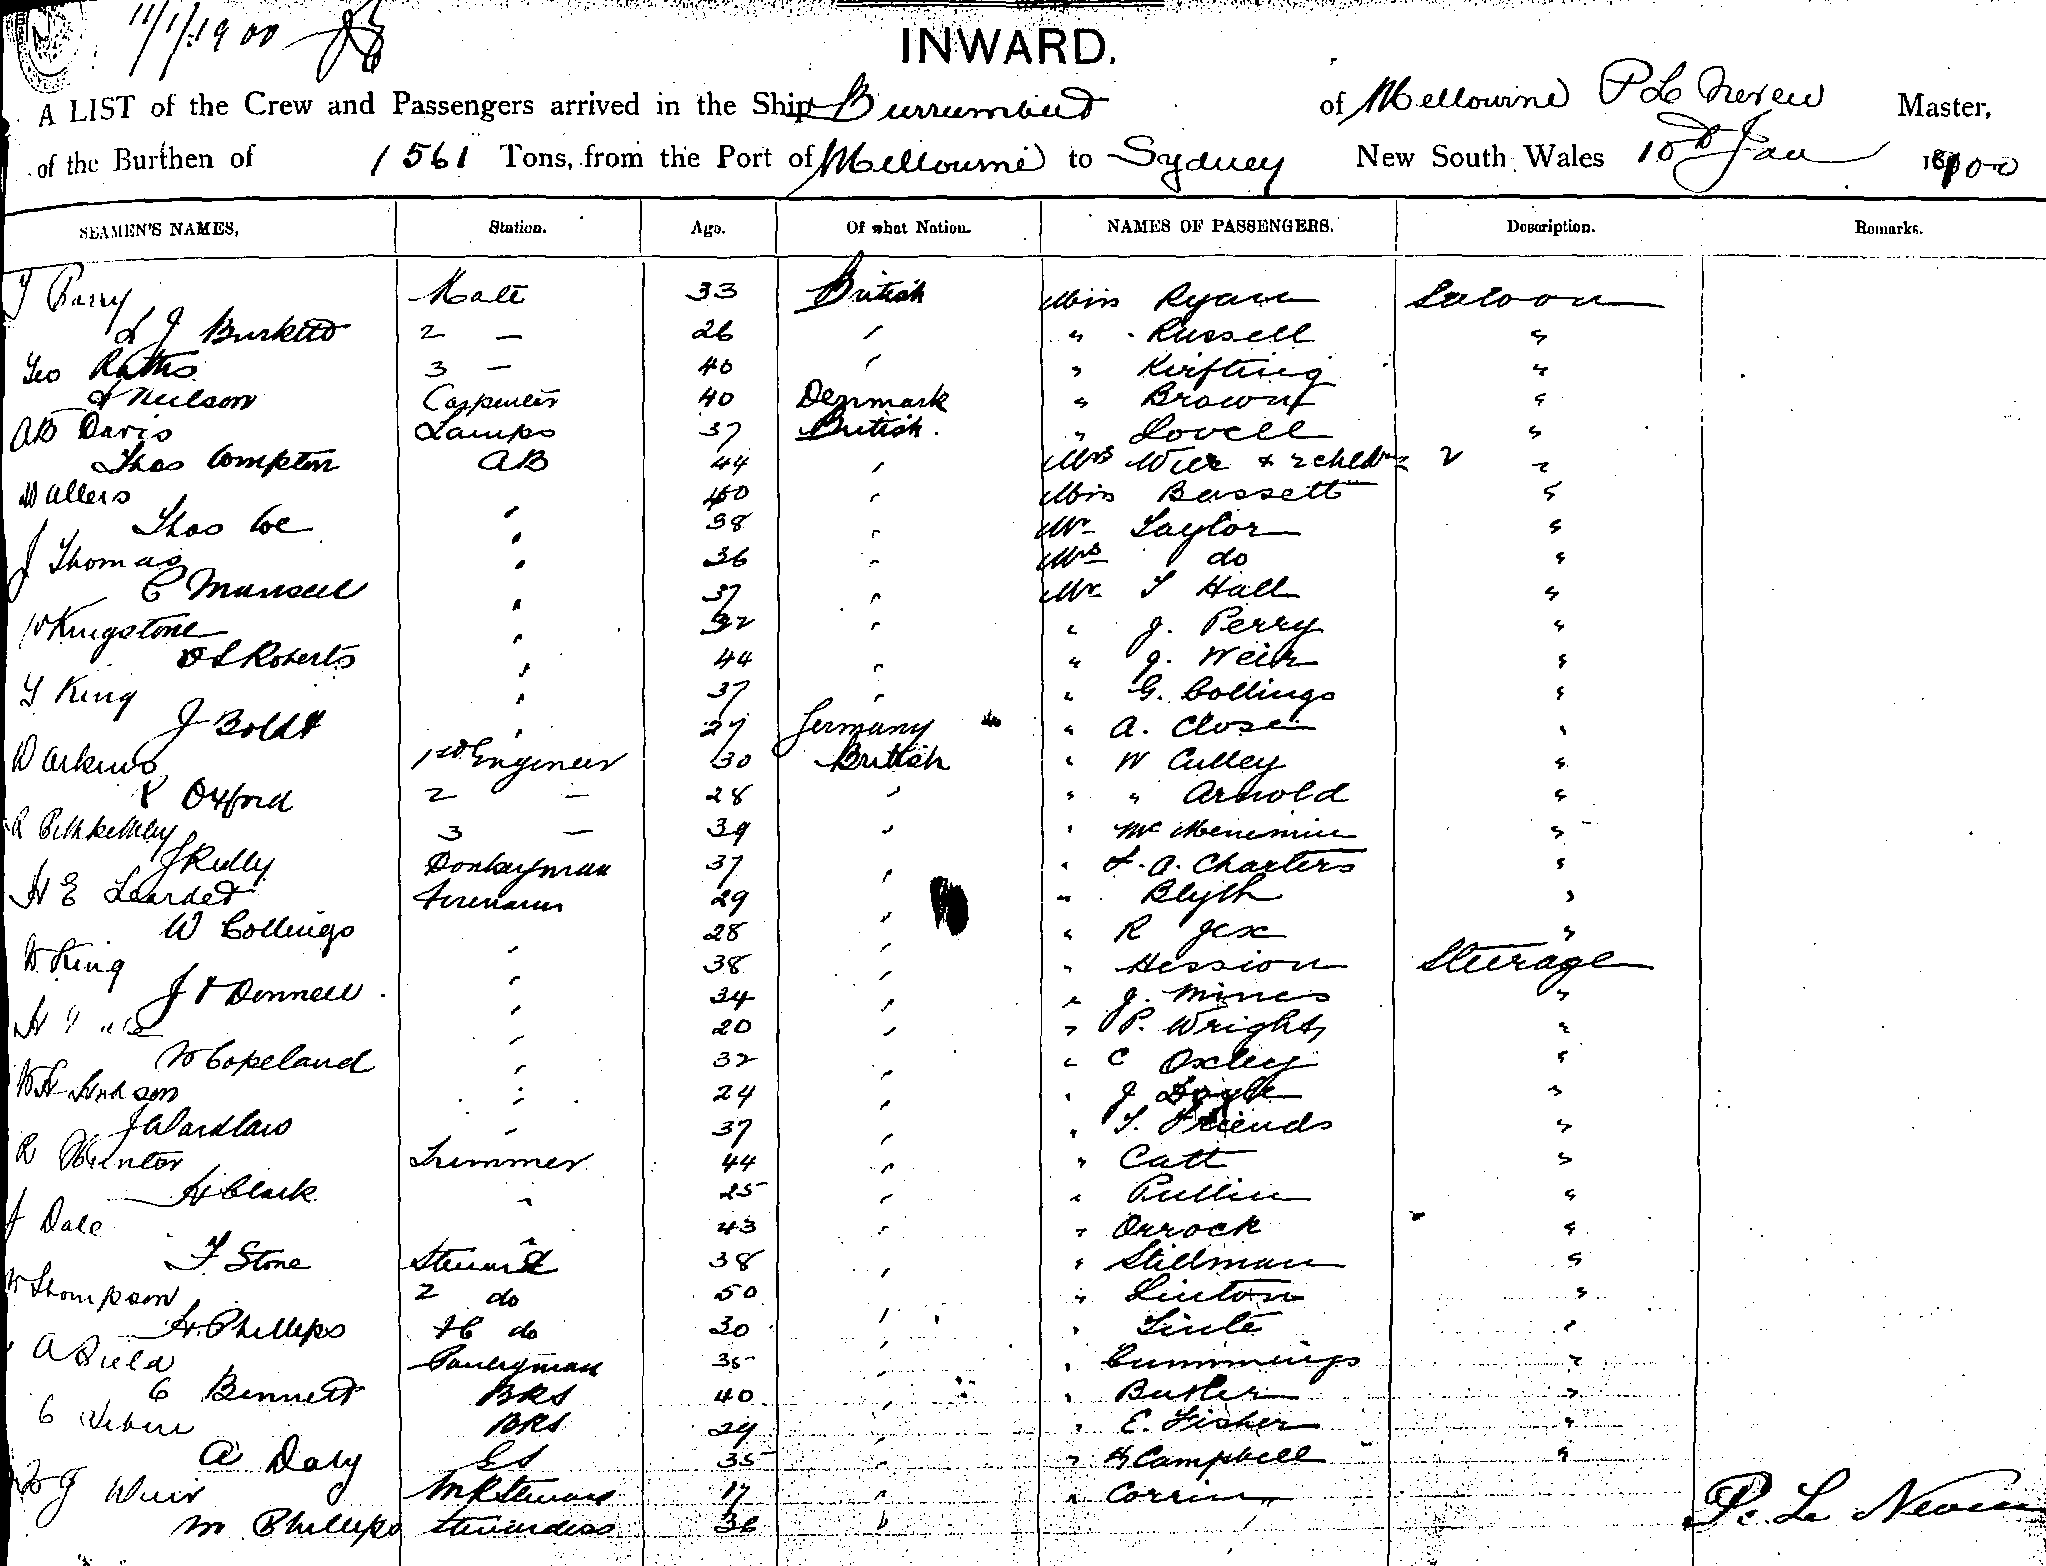 11/1/1900
INWARD.
A LIST of the Crew and Passengers arrived in the Ship Burrumbeet of Melbourne P Le Neveu Master,
of the Burthen of 1561 Tons, from the Port of Melbourne to Sydney New South Wales 10th Jan 1900
SEAMEN'S NAMES, Station. Age. Of what Nation. NAMES OF PASSENGERS. Description. Remarks.
Barry Mate 33 British Miss Ryan Saloon
J Burkett 2 — 26 " " Russell "
Geo 3 — 40 " " "
Neilson Carpenter 40 Denmark " Brown "
AB Davis Lamps 37 British. " Lovell "
Thos Compton AB 44 " Mrs Wier + 2 chldn 2 "
W Allers " 40 " Miss Bassett "
Thos Coe " 38 " Mr Taylor "
J Thomas " 36 " Mrs do "
C Mansell " 37 " Mr T Hall "
W Kingstone " 32 " " J. Perry "
Roberts " 44 " " J. Weir "
King " 37 " " G. Collings "
J Boldt " 27 Germany " A. Close "
1st Engineer 30 British " W Culley "
Oxford 2 — 28 " " " Arnold "
3 — 39 " " "
J Reilly Donkeyman 37 " " A. Charters "
H E Fireman 29 " " Blyth "
W Collings " 28 " " R Jex "
W King " 38 " " Hession Steerage
J O Donnell " 34 " " J. Mines "
H " 20 " " P. Wright "
W Copeland " 32 " " C Oxley "
" 24 " " J Doyle "
J Wardlaw " 37 " " T. Friends "
R Hunter Trimmer 44 " " Catt "
H Clark " 25 " " Pullin "
J Dale " 43 " " Orrock "
F Stone Steward 38 " " Stillman "
W Thompson 2 do 50 " " Linton "
H. Phillips do 30 " " "
A Field Pantryman 35 " " Cummings "
C Bennett BRS 40 " " Butler "
C BRS 29 " " E. Fisher "
A Daly 35 " " H Campbell "
J Weir 17 " "
M Phillips Stewardess 36 "
P. Le Neveu